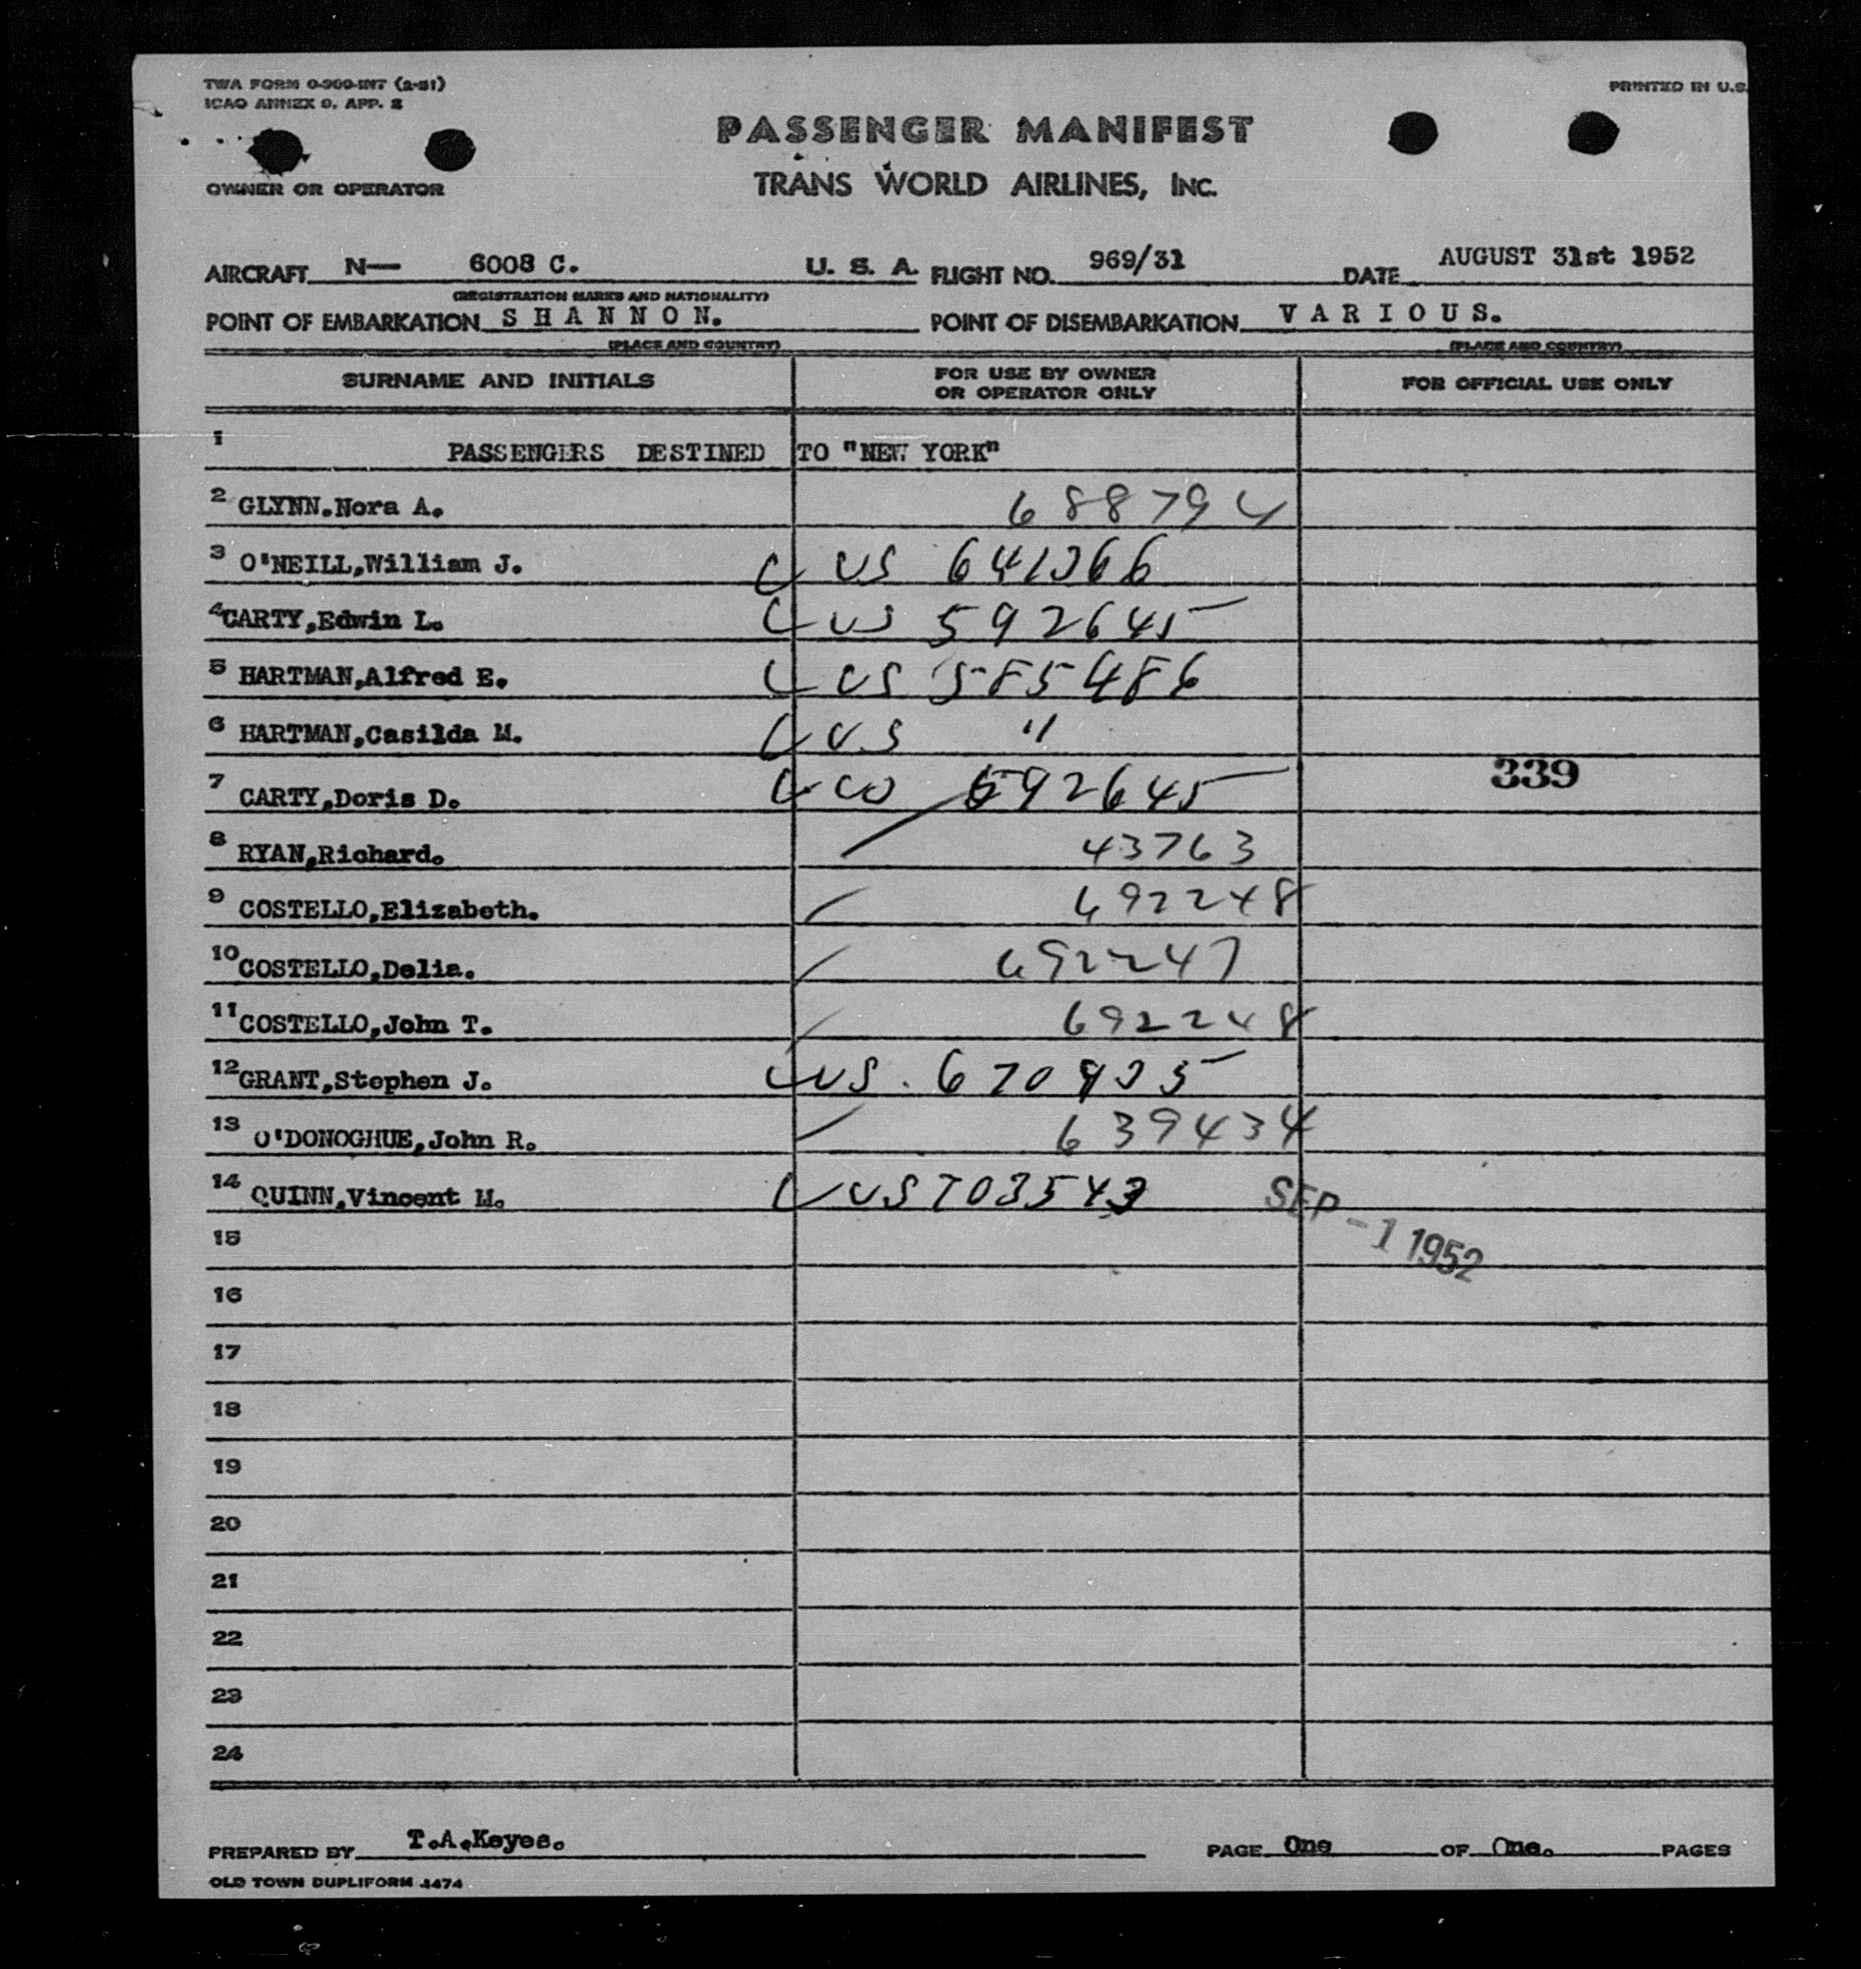 TWA FORM O-900-INT (2-51)
ICAO ANNEX 9, APP. 2
PRINTED IN U.S.
PASSENGER MANIFEST
TRANS WORLD AIRLINES, INC.
OWNER OR OPERATOR
AIRCRAFT N— 6008 C. U. S. A. FLIGHT NO. 969/31 DATE AUGUST 31st 1952
(REGISTRATION MARKS AND NATIONALITY)
POINT OF EMBARKATION S H A N N O N. POINT OF DISEMBARKATION V A R I O U S.
(PLACE AND COUNTRY) (PLACE AND COUNTRY)
SURNAME AND INITIALS FOR USE BY OWNER OR OPERATOR ONLY FOR OFFICIAL USE ONLY
1 PASSENGERS DESTINED TO "NEW YORK"
2 GLYNN.Nora A. 688794
3 O'NEILL,William J. US 641366
4 CARTY,Edwin L. US 592645
5 HARTMAN,Alfred E. US 585486
6 HARTMAN,Casilda M. US "
7 CARTY,Doris D. 592645
339
8 RYAN,Richard. 43763
9 COSTELLO,Elizabeth. 692248
10 COSTELLO,Delia. 692247
11 COSTELLO,John T. 692248
12 GRANT,Stephen J. US. 670935
13 O'DONOGHUE,John R. 639434
14 QUINN,Vincent M. US 703543
SEP -1 1952
15
16
17
18
19
20
21
22
23
24
PREPARED BY T.A.Keyes. PAGE One OF One. PAGES
OLD TOWN DUPLIFORM 4474